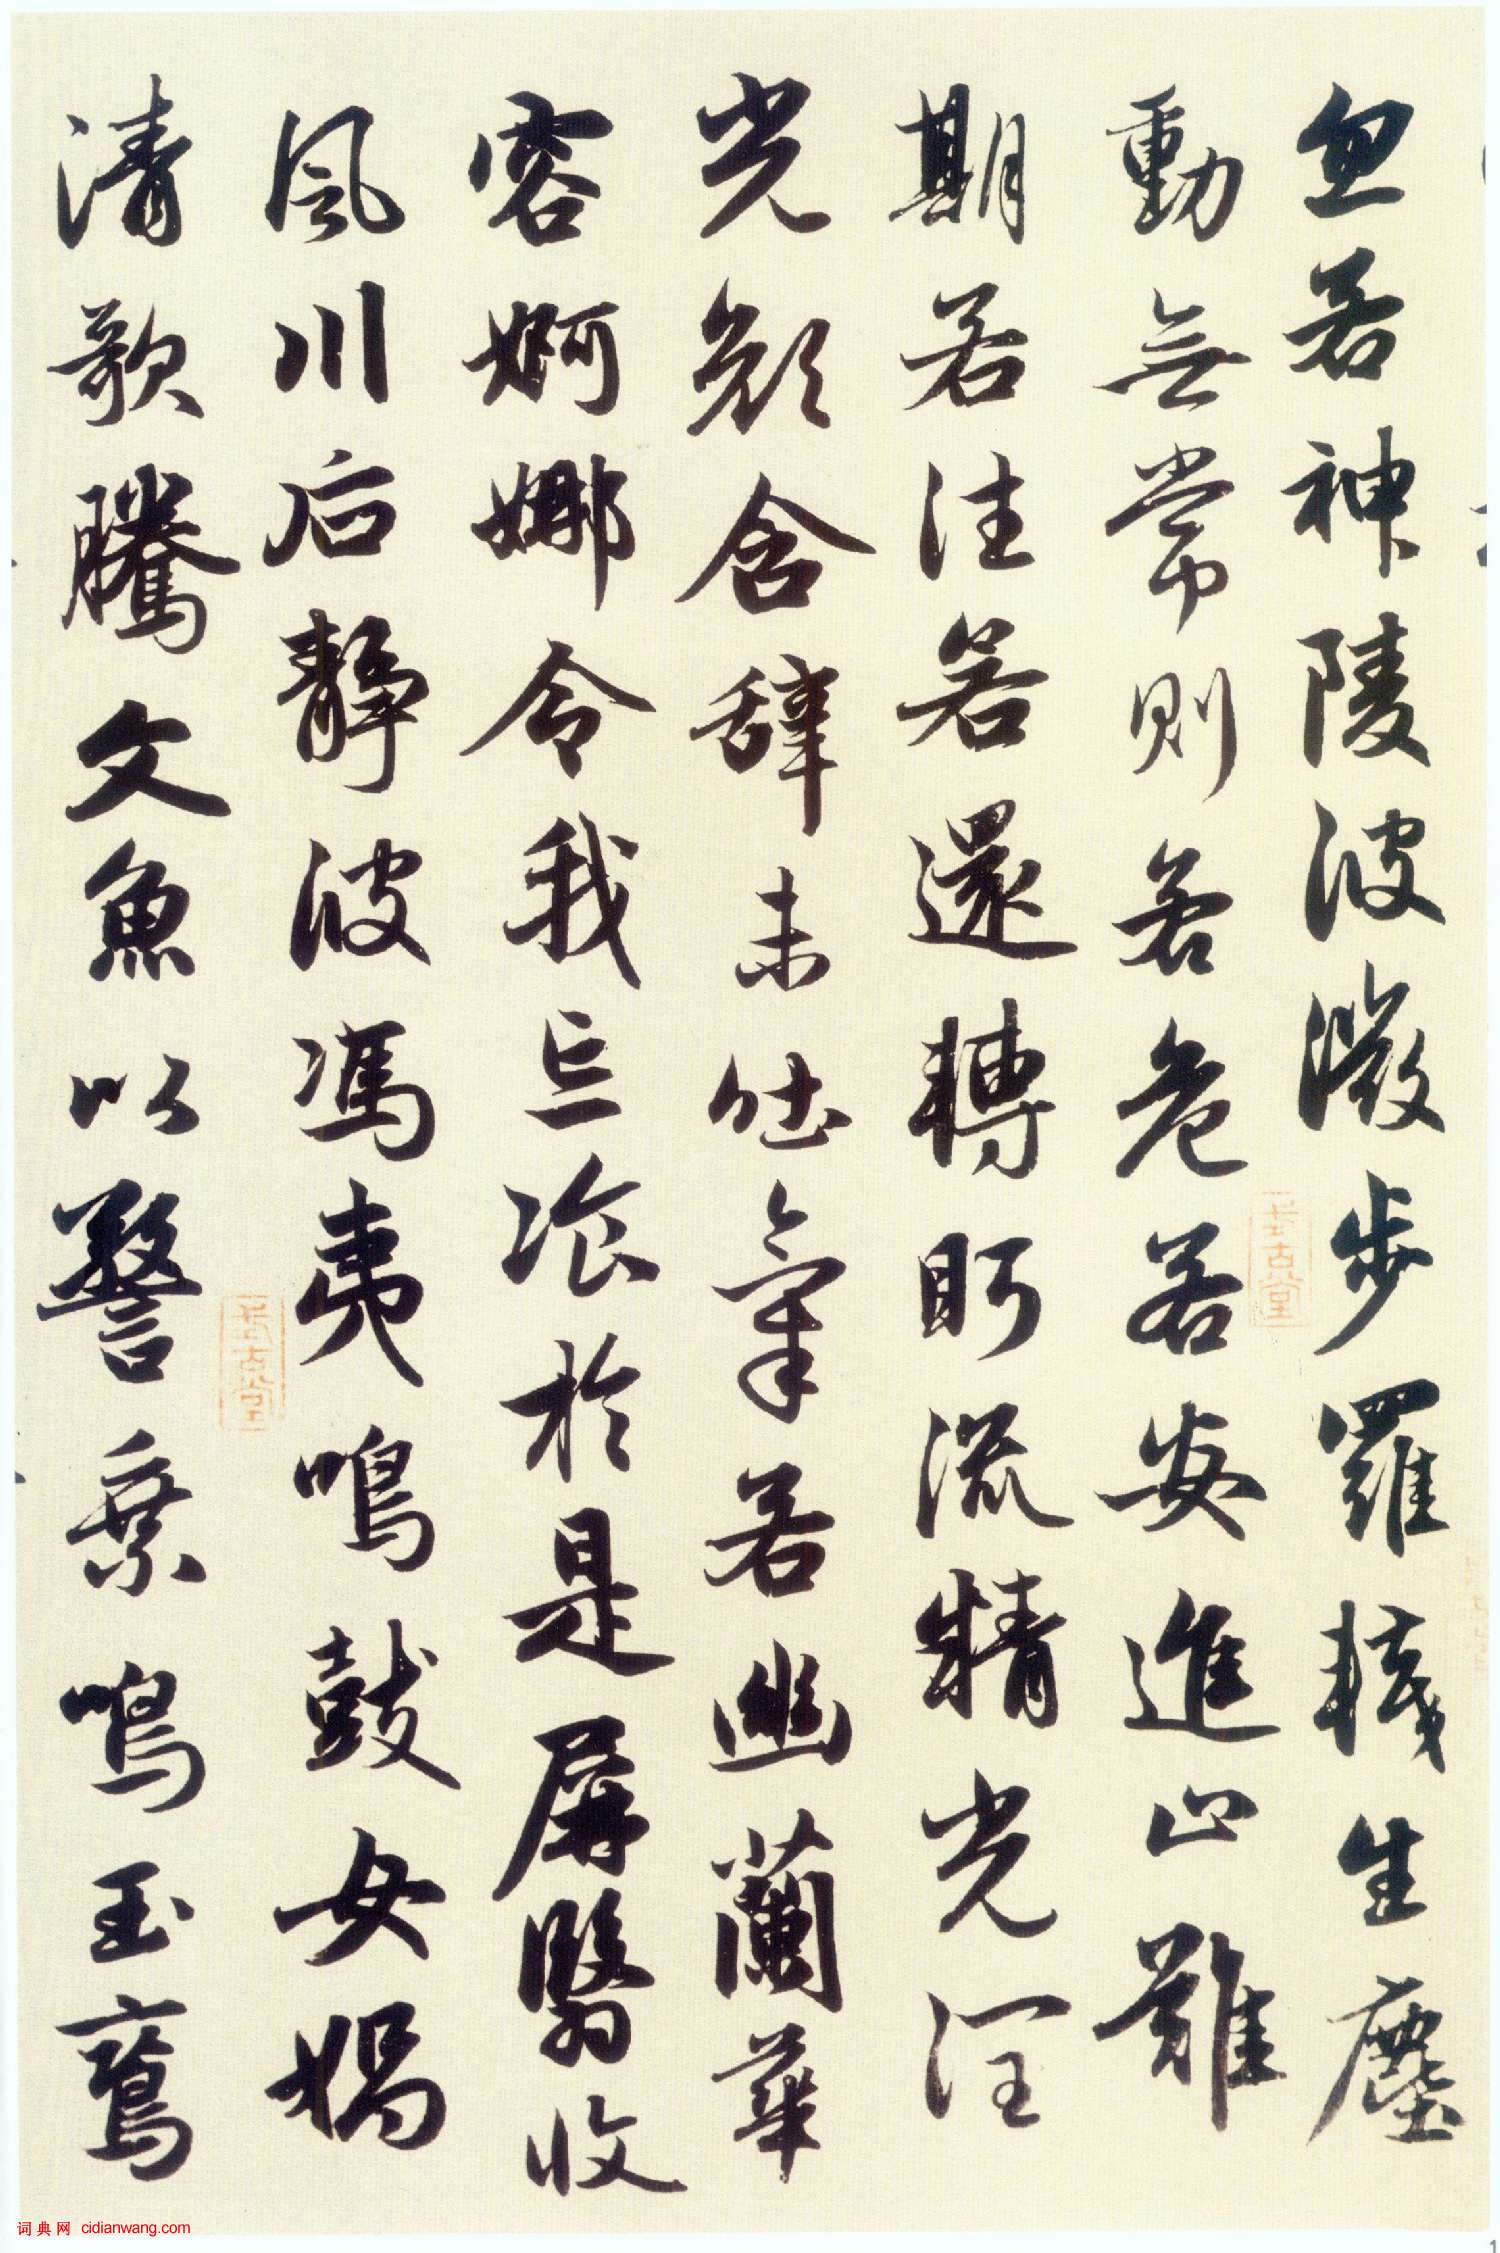 忽若神陵波微步羅韈生塵
動無常則若危若安進止難
期若往若還轉眄流精光潤
光顔含辭未吐氣若幽蘭華
容婀娜令我忘飡於是屏翳收
風川后靜波馮夷鳴鼓女媧
清歌騰文魚以警乗鳴玉鸞
词典网 cidianwang.com
1